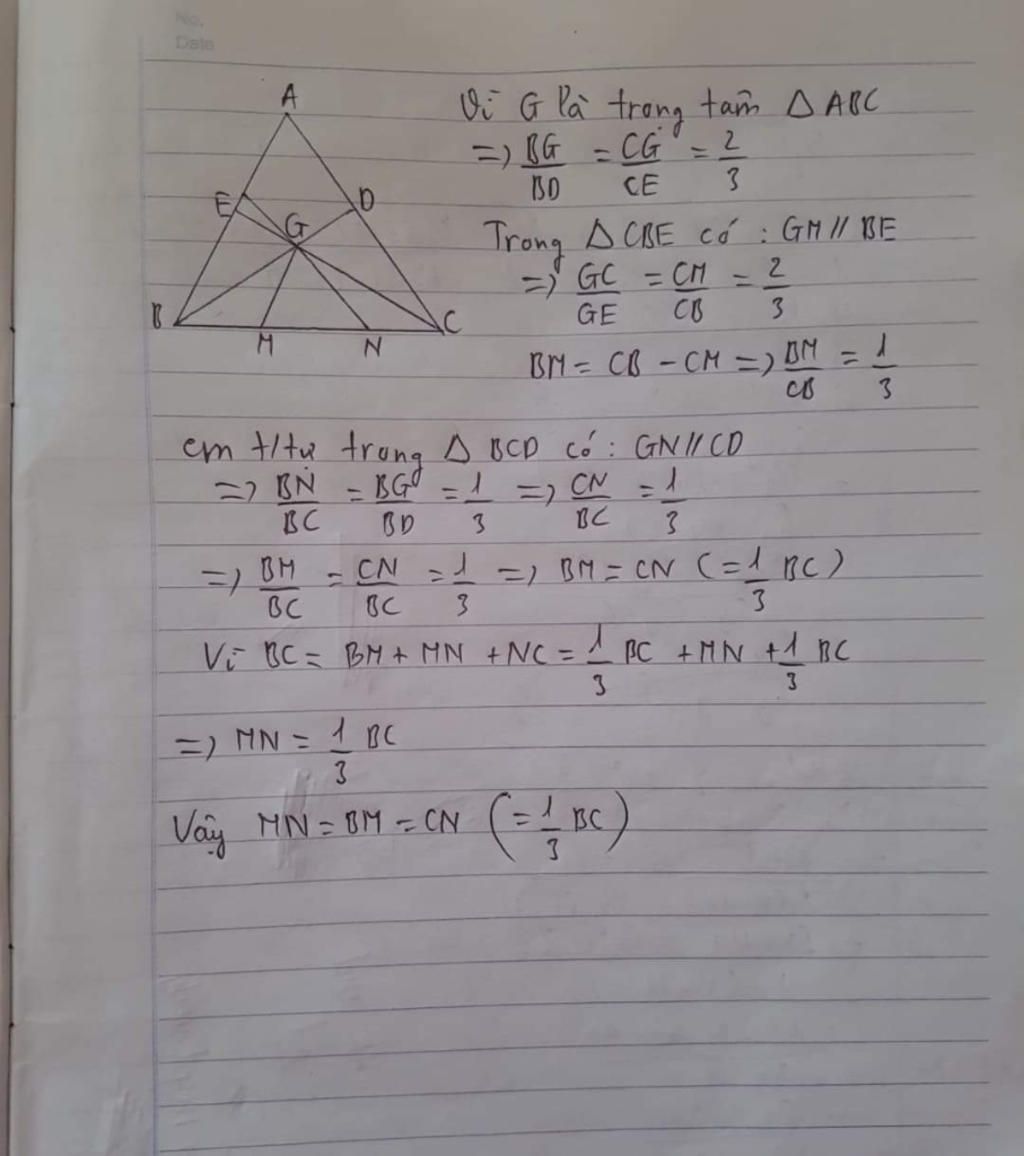 No.
Date
A
Vì G là trọng tâm Δ ABC
=> BG/BD = CG/CE = 2/3
E
D
G
Trong Δ CBE có : GM // BE
=> GC/GE = CM/CB = 2/3
B
C
M
N
BM = CB - CM => BM/CB = 1/3
cm t/tự trong Δ BCD có : GN // CD
=> BN/BC = BG/BD = 1/3 => CN/BC = 1/3
=> BM/BC = CN/BC = 1/3 => BM = CN (= 1/3 BC)
Vì BC = BM + MN + NC = 1/3 BC + MN + 1/3 BC
=> MN = 1/3 BC
Vậy MN = BM = CN (= 1/3 BC)